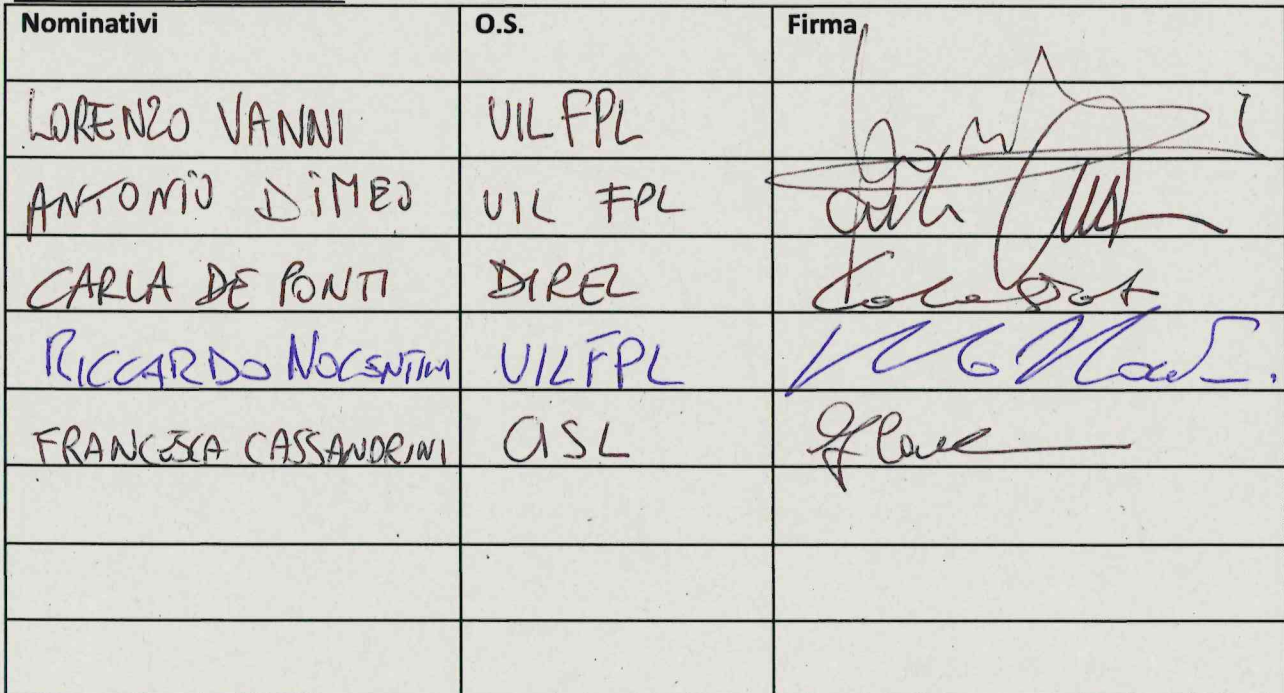 Nominativi O.S. Firma
LORENZO VANNI UIL FPL
ANTONIO DIMEO UIL FPL
CARLA DE PONTI DIREL
RICCARDO NOCENTINI UILFPL
FRANCESCA CASSANDRINI CISL